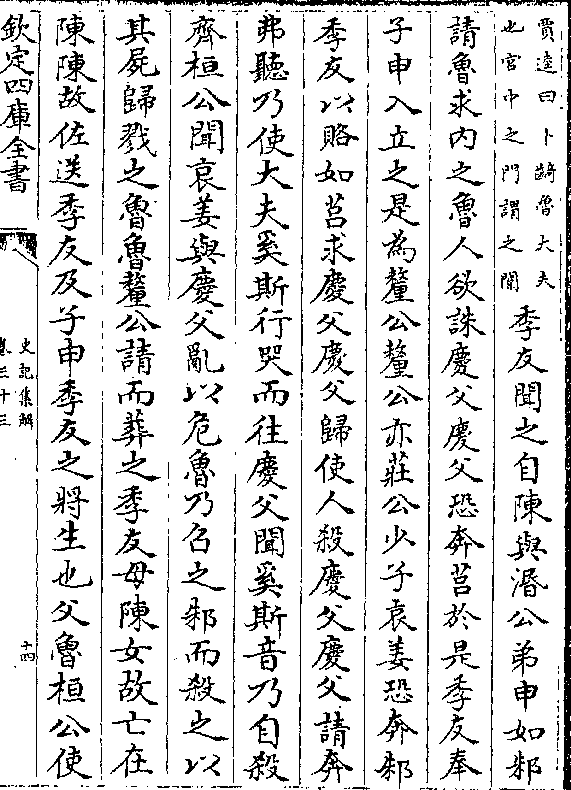 賈逵曰卜齮魯大夫
也宮中之門謂之闈
季友聞之自陳與湣公弟申如邾
請魯求內之魯人欲誅慶父慶父恐奔莒於是季友奉
子申入立之是為釐公釐公亦莊公少子哀姜恐奔邾
季友以賂如莒求慶父慶父歸使人殺慶父慶父請奔
弗聽乃使大夫奚斯行哭而往慶父聞奚斯音乃自殺
齊桓公聞哀姜與慶父亂以危魯乃召之邾而殺之以
其屍歸戮之魯魯釐公請而葬之季友母陳女故亡在
陳陳故佐送季友及子申季友之將生也父魯桓公使
欽定四庫全書
史記集解
卷三十三
十四